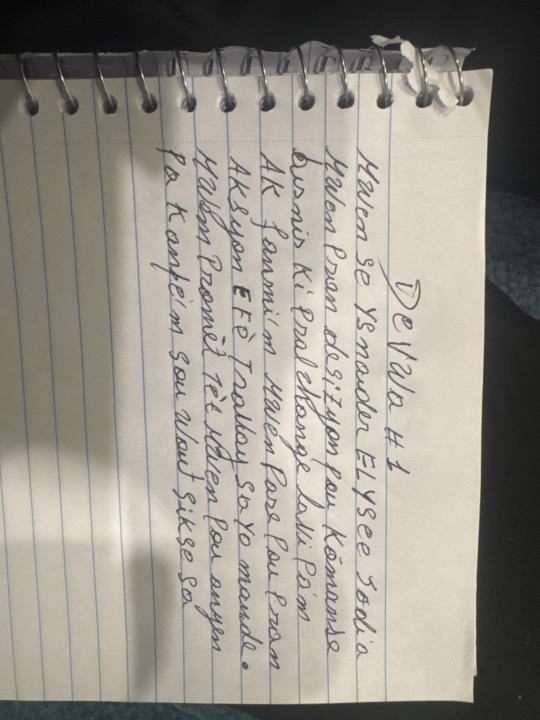 DeVWa #1
Mwen se Ysnaider ELYSEE Jodia
Mwen Pran desizyon pou Kòmanse
bisnis ki Pral chanje lavi Pa'm
Ak fanmi'm Mwen Pare Pou Pran
Aksyon EFÈ Travay sa yo mande.
Mwem Promèt Tèt Mwen Pou anyen
Pa Kanpe'm sou Wout Siksè sa